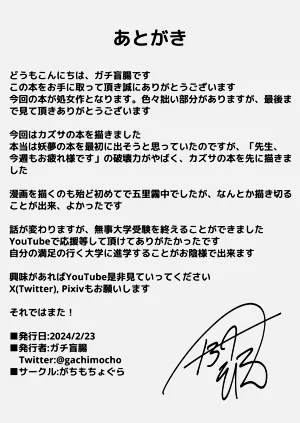 あとがき
どうもこんにちは、ガチ盲腸です
この本をお手に取って頂き誠にありがとうございます
今回の本が処女作となります。色々拙い部分がありますが、最後まで見て頂きありがとうございます
今回はカズサの本を描きました
本当は妖夢の本を最初に出そうと思っていたのですが、「先生、
今週もお疲れ様です」の破壊力がやばく、カズサの本を先に描きま
した
漫画を描くのも殆ど初めてで五里霧中でしたが、なんとか描き切る
ことが出来、よかったです
話が変わりますが、無事大学受験を終えることができました
YouTubeで応援等して頂けてありがたかったです
自分の満足の行く大学に進学することがお陰様で出来ます
興味があればYouTube是非見ていってください
X(Twitter), Pixivもお願いします
それではまた！
■発行日:2024/2/23
■発行者:ガチ盲腸
Twitter:@gachimocho
■サークル:がちもちょぐら